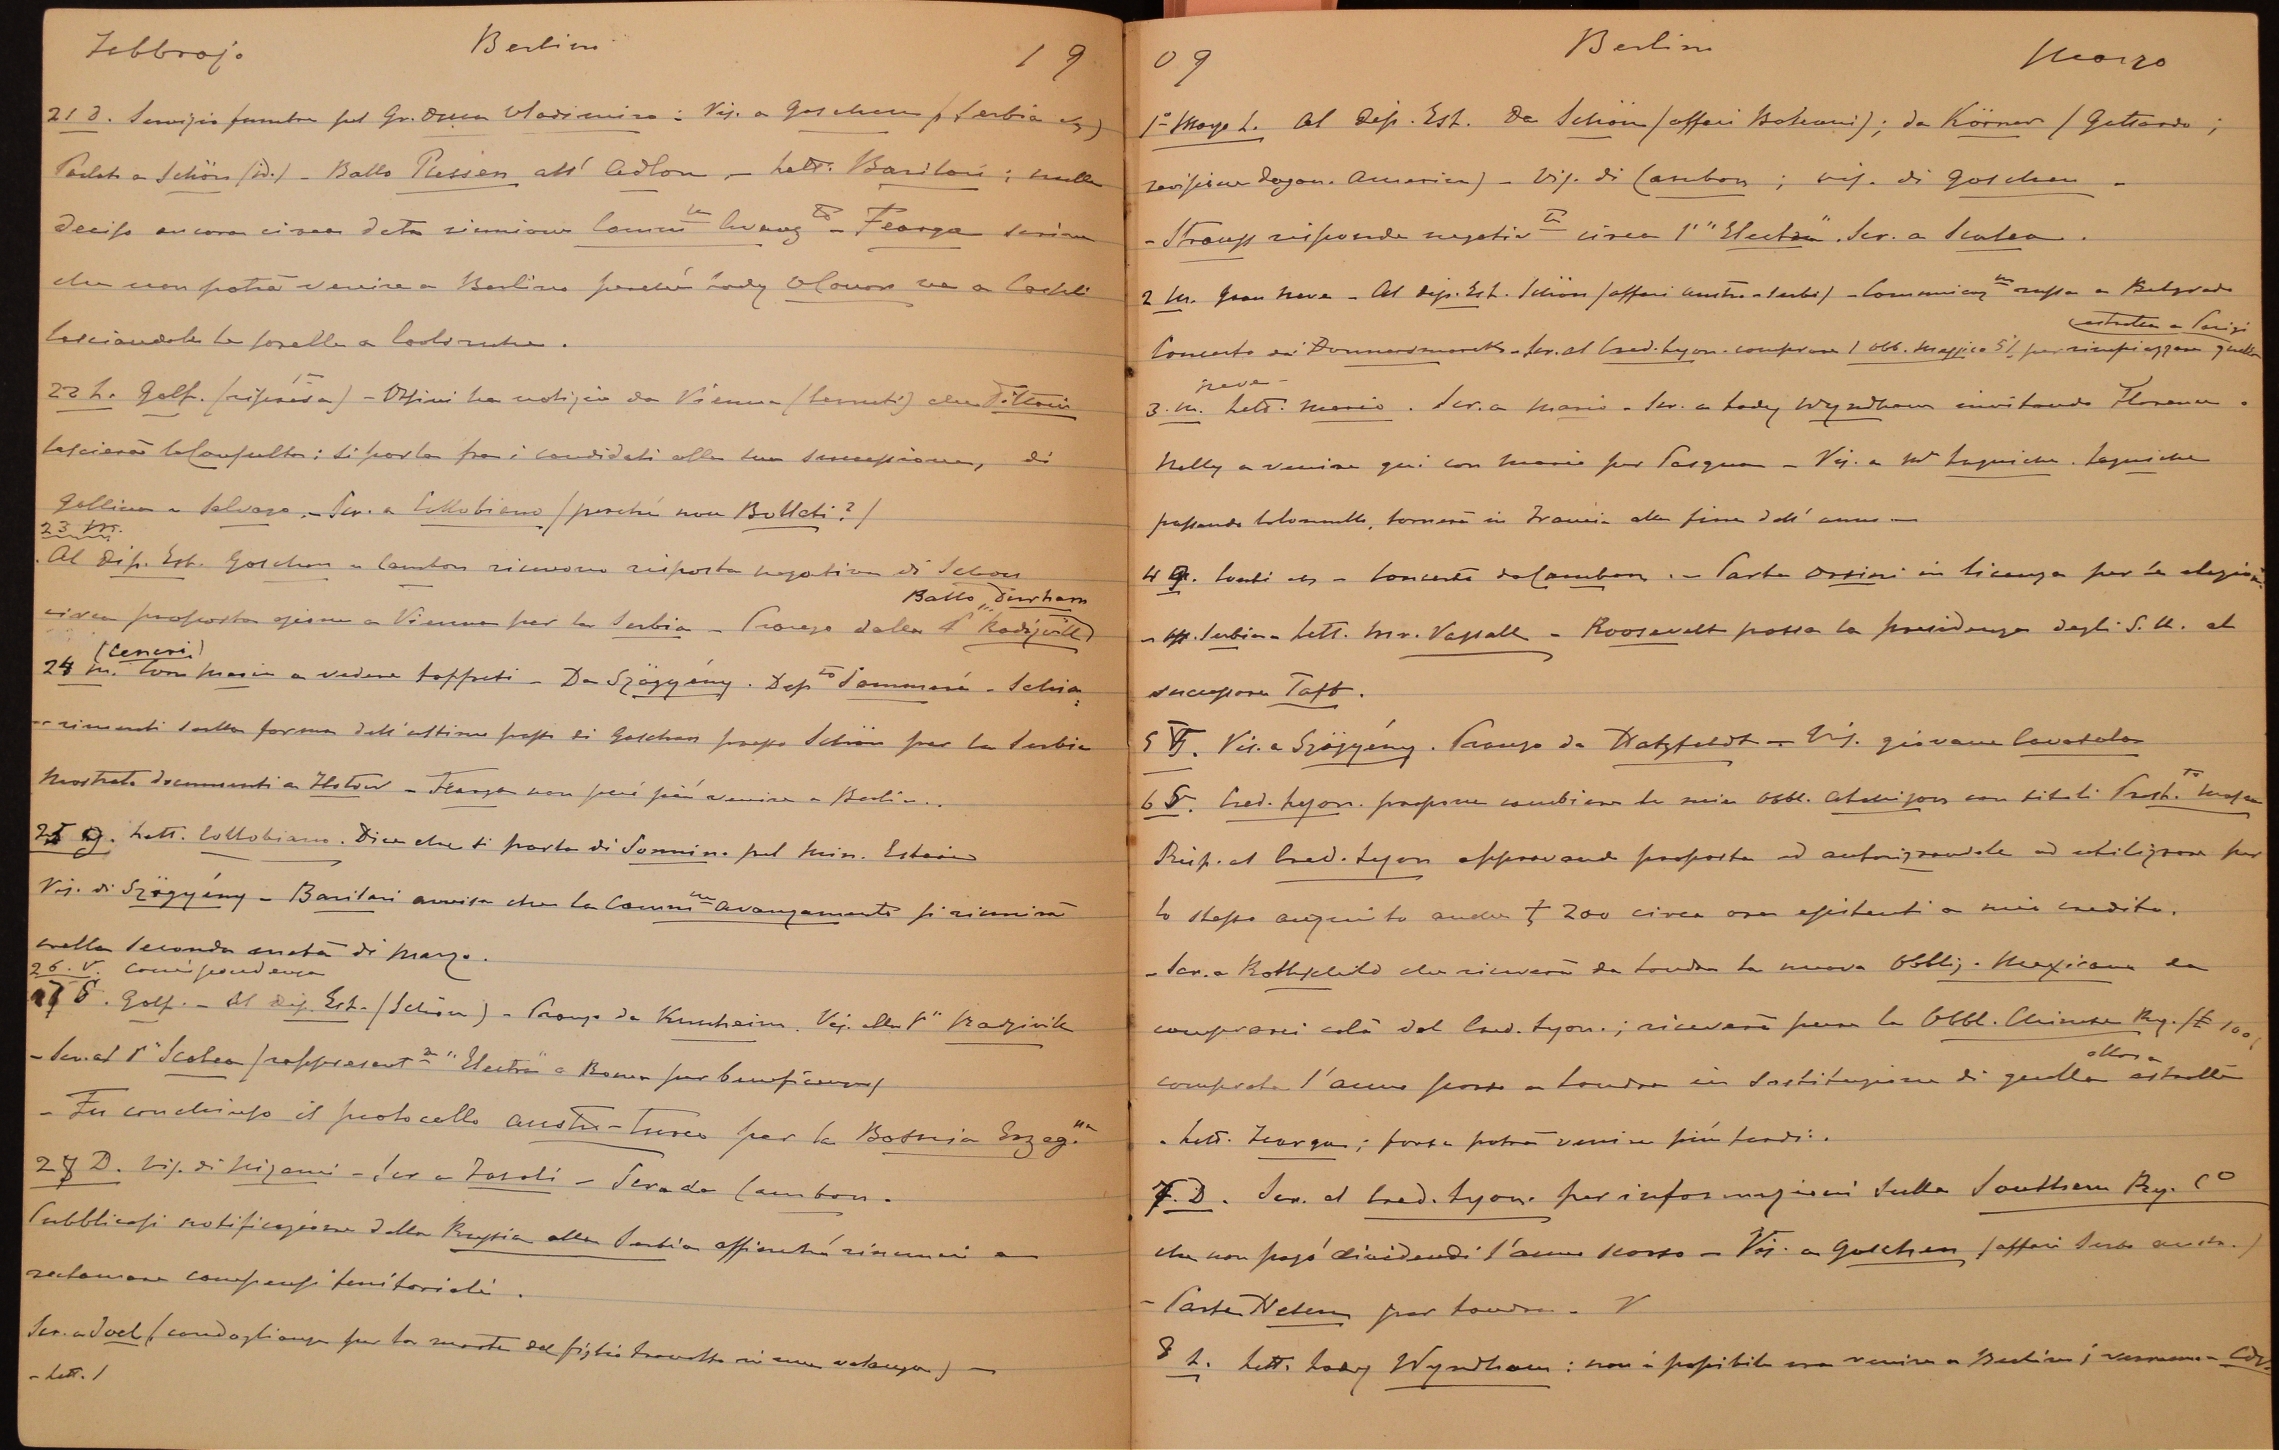 Febbrajo Berlino 19
21 D. Servizio funebre pel Gr. Duca Vladimiro : Vis. a Goschen (Serbia etc)
Parlato a Schön (id.) - Ballo Plessen all' Adlon - Lett. Barilari ; nulla
deciso ancora circa data riunione Comm.ne Avanz.to - Fearga scrive
che non potrà venire a Berlino perché Lady O'Conor va a
lasciandole le sorelle a Carlsruhe.
22 L. Golf. (ripresa) - Orsini ha notizia da Vienna che Tittoni
lascierà la Consulta : si parla fra i candidati alla sua successione, di
Gallina e Salvago. - Scr. a Collobiano (perché non Bollati?)
23 M.
Al Dip. Est. Goschen e Cambon ricevono risposta negativa di Schoen
Ballo Durham
circa proposta azione a Vienna per la Serbia - Pranzo dalla P.ssa Radziwill
(Ceneri)
24 M. Con Maria a vedere soffitti - Da Szögyény. Dep.to Sommará - Schia-
-rimenti sulla forma dell'ultimo passo di Goschen presso Schön per la Serbia
Mostrato documenti a Flotow - Fearga non può più venire a Berlino..
25 G. Lett. Collobiano. Dice che si parla di Sonnino pel Min. Esteri
Vis. di Szögyény - Barilari avvisa che la Comm.ne avanzamento si riunirà
nella seconda metà di Marzo.
26. V. Corrispondenza
27 S. Golf. - Al Dip. Est. (Schön) - Pranzo da Kunheim. Vis. alla P.ssa Radziwill
- Scr. al P.pe Scalea (rappresent.ne "Electra" a Roma per beneficenza)
- Fu conchiuso il protocollo austro-turco per la Bosnia Erzeg.na
28 D. Vis. di Nizami - Scr a Fasoli - Sera da Cambon.
Pubblicasi notificazione della Russia alla Serbia affinché rinunci a
reclamare compensi territoriali.
Scr. a Joel (condoglianze per la morte del figlio travolto in una valanga) -
- Lett. /
09 Berlino Marzo
1° Marzo L. Al Dip. Est. Da Schön (affari Balcani) ; da Körner (Gottardo ;
revisione dogan. America) - Vis. di Cambon ; vis. di Goschen -
- Strauss risponde negativ.te circa l'"Electra". Scr. a Scalea.
2 M. Gran neve - Al Dip. Est. Schön (affari austro-serbi) - Comunicaz.ne russa a Belgrado
estratta a Parigi
Concerto dai Donnersmarck - Scr. al Cred. Lyon. comprare 1 Obb. Messico 5% per rimpiazzare quella
neve -
3. M. Lett. Mario. Scr. a Mario - Scr. a Lady Wyndham invitando Florence e
Nelly a venire qui con Mario per Pasqua - Vis. a Mr Laguiche. Laguiche
passando Colonnello, tornerà in Francia alla fine dell'anno -
4 G. Conti etc - Concerto da Cambon. - Parte Orsini in licenza per le elezioni.
- Aff. Serbia - Lett. Mr. Vassall - Roosevelt passa la presidenza degli S. U. al
successore Taft.
5 V. Vis. a Szögyény. Pranzo da Hatzfeldt - Vis. giovane
6 S. Cred. Lyon. propone cambiare le mie Obbl. Atchison con titoli Prest.to
Risp. al Cred. Lyon approvando proposta ed autorizzandolo ad utilizzare per
lo stesso acquisto anche £ 200 circa ora esistenti a mio credito.
- Scr. a Rothschild che riceverà da Londra la nuova Obblig. Mexicana da
comprarsi colà dal Cred. Lyon. ; riceverà pure la Obbl. Chinese Ry. (£ 100)
allora
comprata l'anno scorso a Londra in sostituzione di quella estratta
- Lett. Fearga ; forse potrà venire più tardi..
7. D. Scr. al Cred. Lyon. per informazioni sulla Southern Ry. C°
che non pagò dividendi l'anno scorso - Vis. a Goschen (affari serbo austr.)
- Parte per Londra -
8 L. Lett. Lady Wyndham : non è possibile ora venire a Berlino ;